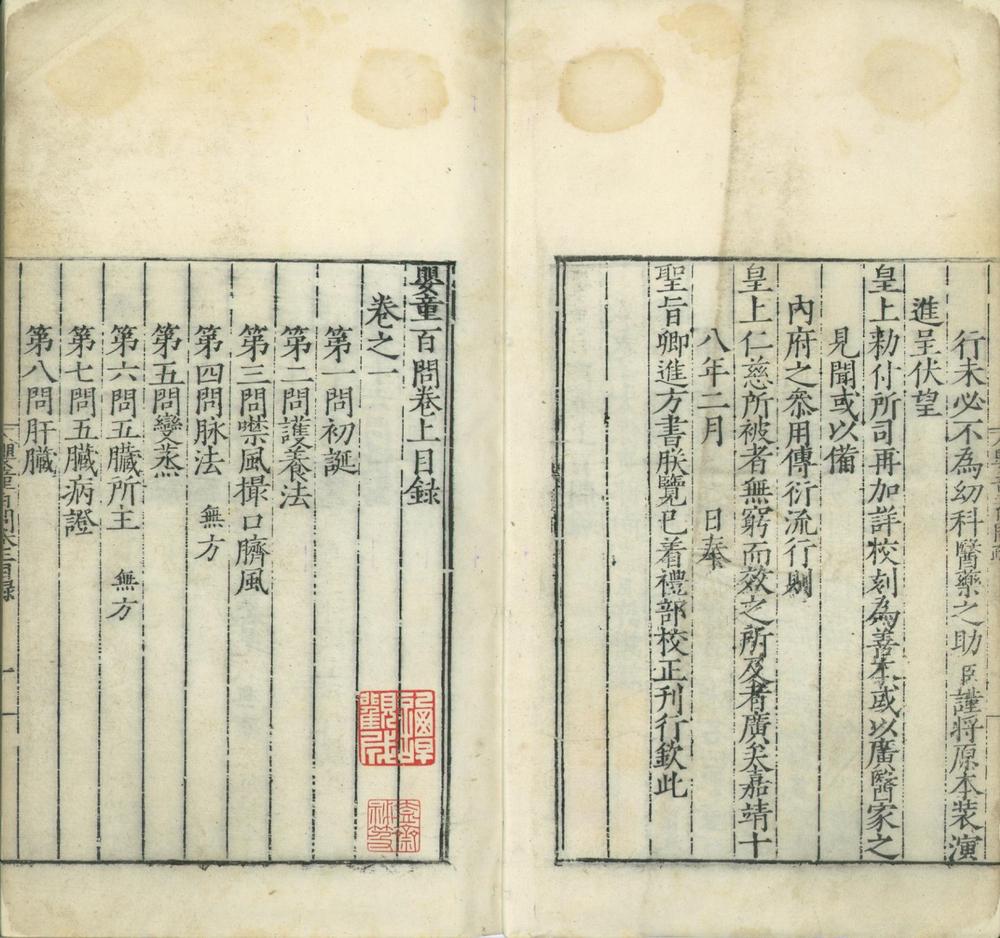 行未必不為幼科醫藥之助臣謹將原本裝演
進呈伏望
皇上勑付所司再加詳校刻為善本或以廣醫家之
見聞或以備
內府之叅用傳衍流行則
皇上仁慈所被者無窮而效之所及者廣矣嘉靖十
八年二月 日奏
聖旨卿進方書朕覽已着禮部校正刊行欽此
嬰童百問卷上目録
卷之一
第一問初誕
第二問護養法
第三問噤風撮口臍風
第四問脉法 無方
第五問變蒸
第六問五臟所主 無方
第七問五臟病證
第八問肝臟